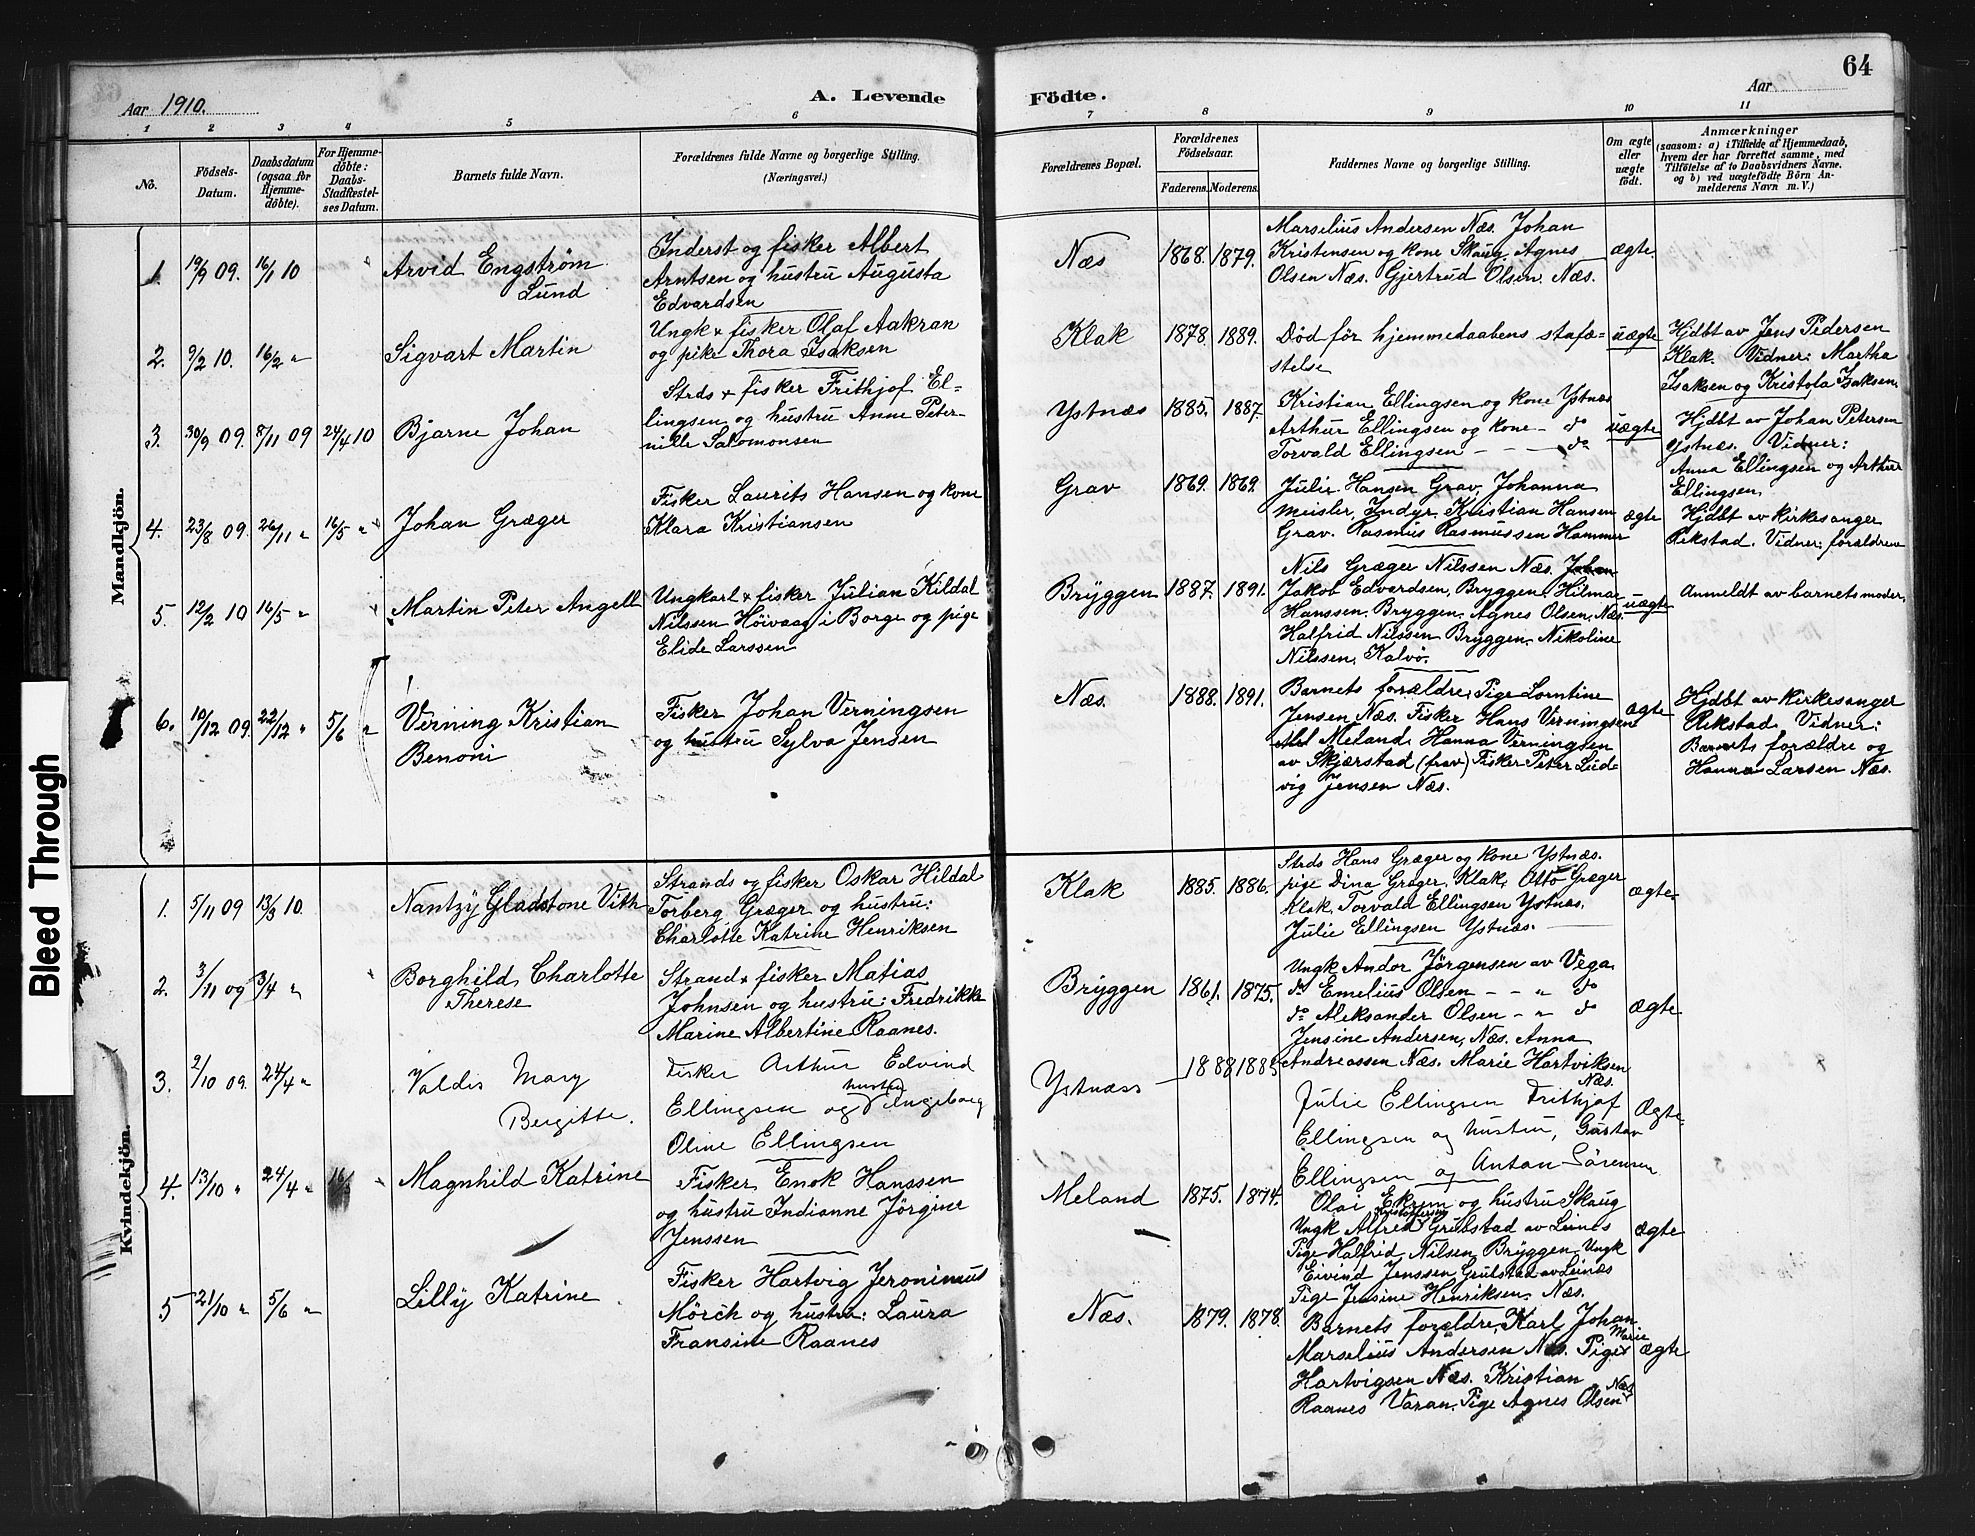 64
Aar 1910.
A. Levende
Födte.
Aar
1 2 3 4 5 6 7 8 9 10 11
No.
Födsels-
Datum.
Daabsdatum
(ogsaa for
Hjemme-
döbte).
For Hjemme-
döbte:
Daabs-
Stadfæstel-
ses Datum.
Barnets fulde Navn.
Forældrenes fulde Navne og borgerlige Stilling.
(Næringsvei.)
Forældrenes Bopæl.
Forældrenes
Födselsaar.
Faderens. Moderens.
Faddernes Navne og borgerlige Stilling.
Om ægte
eller
uægte
födt.
Anmærkninger
(saasom: a) i Tilfælde af Hjemmedaab,
hvem der har forrettet samme, med
Tilföielse af to Daabsvidners Navne.
og b) ved uægtefödte Börn An-
melderens Navn m. V.)
Mandkjön.
1. 19/9 09. 16/1 10
Arvid Engstrøm
Lund
Inderst og fisker Albert
Arntsen og hustru Augusta
Edvardsen
Næs 1868. 1879.
Marselius Andersen Næs. Johan
Kristensen og kone Skaug. Agnes
Olsen Næs. Gjertrud Olsen. Næs.
ægte.
2. 9/2 10. 16/2 "
Sigvart Martin
Ungk & fisker Olaf Aakran
og pike Thora Isaksen
Klak 1878. 1889.
Död før hjemmedaabens stafæ=
stelse
uægte
Hjdbt av Jens Pedersen
Klak. Vidner: Martha
Isaksen og Kristola Isaksen.
3. 30/9 09. 8/11 09 24/4 10
Bjarne Johan
Strds & fisker Frithjof El=
lingsen og hustru Anne Peter-
nille Salomonsen
Ystnæs 1885. 1887.
Kristian Ellingsen og kone Ystnæs
Arthur Ellingsen og kone - do
Torvald Ellingsen - - - do
uægte
Hjdbt av Johan Petersen
Ystnæs. Vidner:
Anna Ellingsen og Arthur
Ellingsen.
4. 23/8 09. 26/11 " 16/5 "
Johan Græger
Fisker Laurits Hansen og kone
Klara Kristiansen
Grav 1869. 1869.
Julie Hansen Grav, Johanna
Meisler, Indyr, Kristian Hansen
Grav. Rasmus Rasmussen Hammer
ægte
Hjdbt av kirkesanger
Rekstad. Vidner: forældrene
5. 12/2 10 16/5 "
Martin Peter Angell
Ungkarl & fisker Julian Kildal
Nilssen Höivaag i Borge og pige
Elide Larssen
Bryggen 1887. 1891.
Nils Græger Nilssen Næs. Johan
Jakob Edvardsen, Bryggen. Hilmar
Hanssen. Bryggen. Agnes Olsen. Næs.
Halfrid Nilssen Bryggen. Nikoline
Nilssen, Kalvö.
uægte
Anmeldt av barnets moder.
6. 10/12 09. 22/12 " 5/6 "
Verning Kristian
Benoni
Fisker Johan Verningsen
og hustru Sylva Jensen
Næs. 1888. 1891.
Barnets forældre, Pige Lorntine
Jensen Næs. Fisker Hans Verningsen
Meland. Hanna Verningsen
av Skjærstad (frav) Fisker Peter Lud-
vig Jensen Næs.
ægte
Hjdbt av kirkesanger
Rekstad. Vidner:
Barnets forældre og
Hanna Larsen Næs.
Kvindekjön.
1. 5/11 09 13/3 10.
Nantzy Gladstone Vith
Strands og fisker Oskar Hildal
Torberg Græger og hustru:
Charlotte Katrine Henriksen
Klak 1885. 1886.
Strds Hans Græger og kone Ystnæs.
pige Dina Græger, Klak, Otto Græger
Klak, Torvald Ellingsen Ystnæs.
Julie Ellingsen Ystnæs.
ægte.
2. 3/11 09 3/4 "
Borghild Charlotte
Therese
Strand & fisker Matias
Johnsen og hustru: Fredrikke
Marine Albertine Raanes.
Bryggen 1861. 1875.
Ungk Andor Jörgensen av Vega
do Emelius Olsen - - " do
do Aleksander Olsen - " do
Jensine Andersen, Næs. Anna
Andreassen Næs. Marie Hartviksen
Næs.
ægte
3. 2/10 09. 24/4 "
Valdis Mary
Bergitte.
Fisker Arthur Edvind
Ellingsen og hustru Ingeborg
Oline Ellingsen
Ystnæss 1888
Julie Ellingsen Frithjof
Ellingsen og hustru, Gustav
Ellingsen og Anton Sörensen
Ægte.
4. 13/10 " 24/4 "
Magnhild Katrine
Fisker Enok Hanssen
og hustru Indianne Jörgine
Jenssen
Meland 1875. 1874.
Olai og hustru Skaug
Ungk Alfred Grubstad av Leines
Pige Halfrid Nilsen Bryggen, Ungk
Eivind Jenssen av Leines
Pige Jensine Henriksen. Næs.
ægte
5 21/10 " 5/6 "
Lilly Katrine
Fisker Hartvig Jeronimus
Mörch og hustru: Laura
Fransine Raanes
Næs. 1879. 1878.
Barnets forældre, Karl Johan
Marselius Andersen Næs. Pige Marie
Hartvigsen Næs. Kristian
Raanes Varan. Pige Agnes Olsen Næs
ægte
Bleed Through